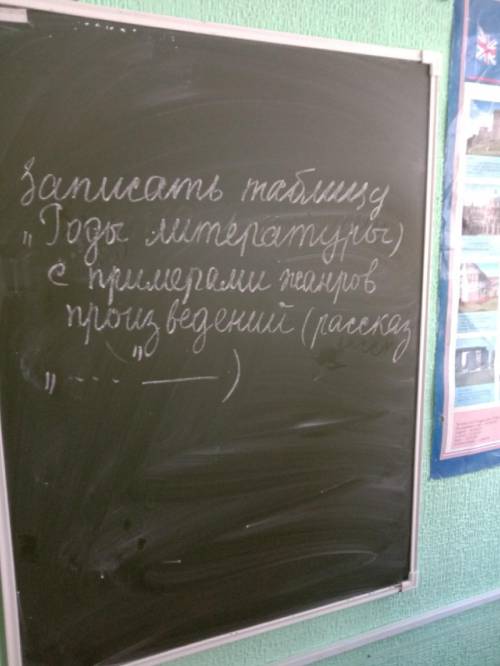 Записать таблицу
„Роды литературы)
с примерами жанров
произведений (рассказ
„ ... " ——)